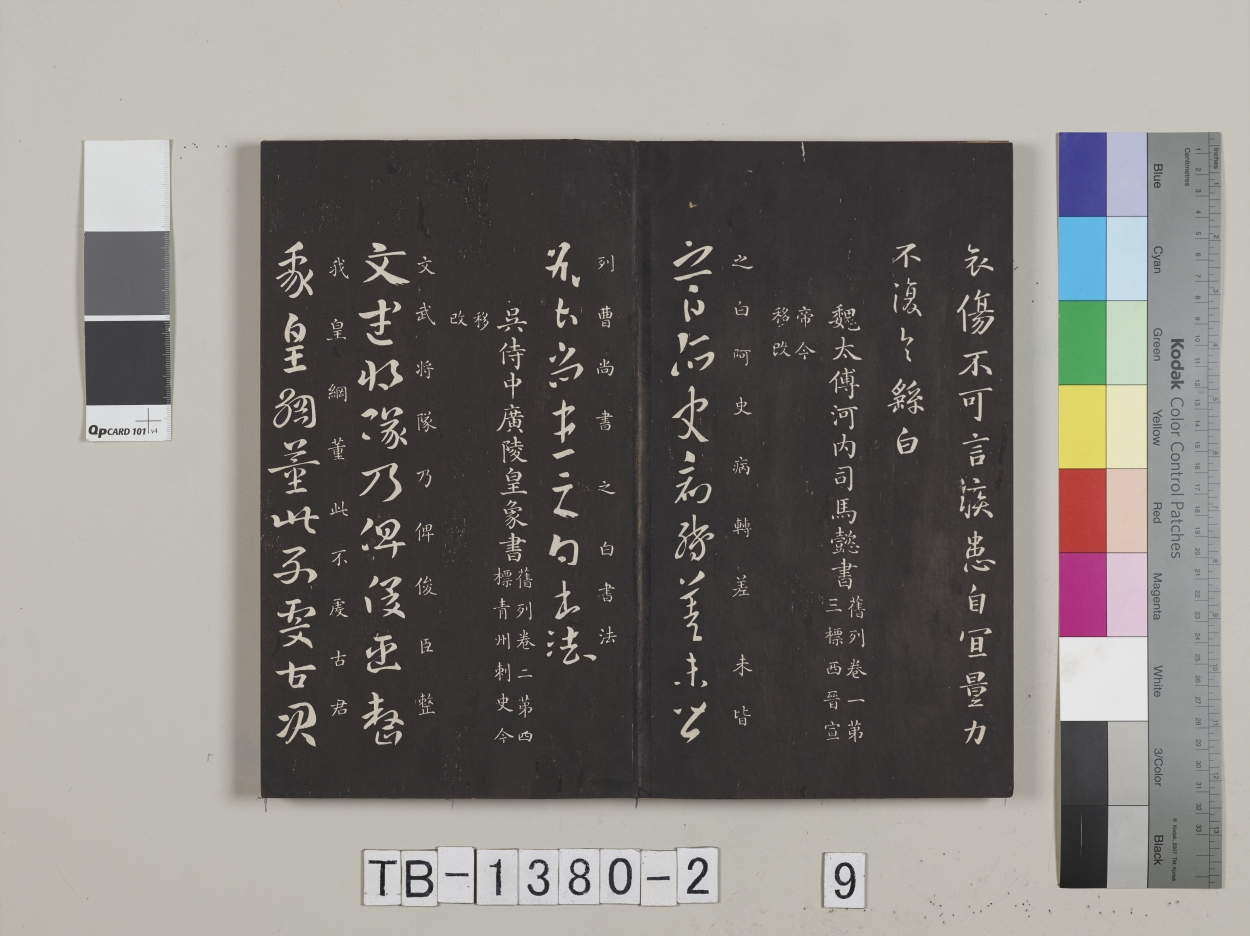 哀傷不可言疾患自宜量力
不復々繇白
魏太傅河内司馬懿書
舊列卷一第
三標西晉宣
帝今
移改
之白阿史病轉差未皆
之白阿史病轉差未皆
列曹尚書之白書法
列曹尚書之白書法
吳侍中廣陵皇象書
舊列卷二第四
標青州刺史今
移
改
文武将隊乃俾俊臣整
文武将隊乃俾俊臣整
我皇綱董此不虔古君
我皇綱董此不虔古君
QpCARD 101 v4
TB-1380-2
9
Kodak Color Control Patches
Blue
Cyan
Green
Yellow
Red
Magenta
White
3/Color
Black
Inches
Centimetres